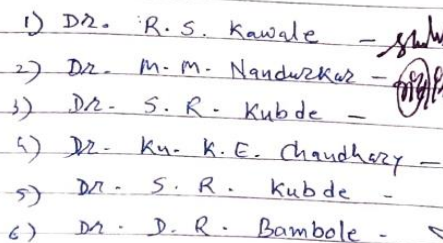 1) Dr. R. S. Kawale -
2) Dr. M. M. Nandurkar -
3) Dr. S. R. Kubde -
4) Dr. Ku. K. E. Chaudhary -
5) Dr. S. R. Kubde -
6) Dr. D. R. Bambole -